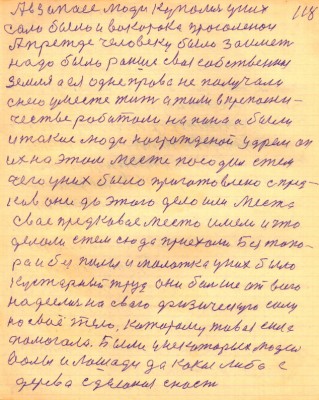 118
А в запасе люди купалия у них
сало было и окорока просоленои
А прежде человеку было займет
надо было раньше своя собственни
земля а если одне права не получали
снею уместе жит а жили в крепосни-
честве работали на пана а были
и такие люди награжденой
их на этом месте посодил стем
чего у них было приготовлено спред-
ков они до этого дело или места
свае предковае место имели и это
делали стем сюда приехали Без топо-
ра и без пилы и молотка у них было
кустарный труд они больше от всего
надеялис на свою физическую силу
на своё тело, которому живая сила
помогала. Были у некоторых людей
волы и лошади да кокая либо с
дерева сделоная снаст